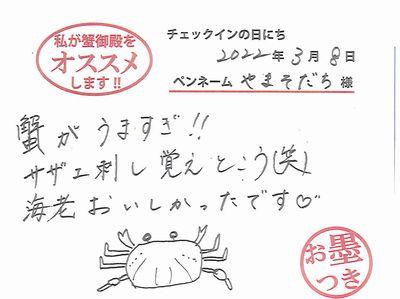 私が蟹御殿を
オススメ
します!!
チェックインの日にち
2022年 3月 8日
ペンネーム やまそだち 様
蟹がうますぎ!!
サザエ刺し覚えとこう(笑)
海老おいしかったです♡
お墨
つき